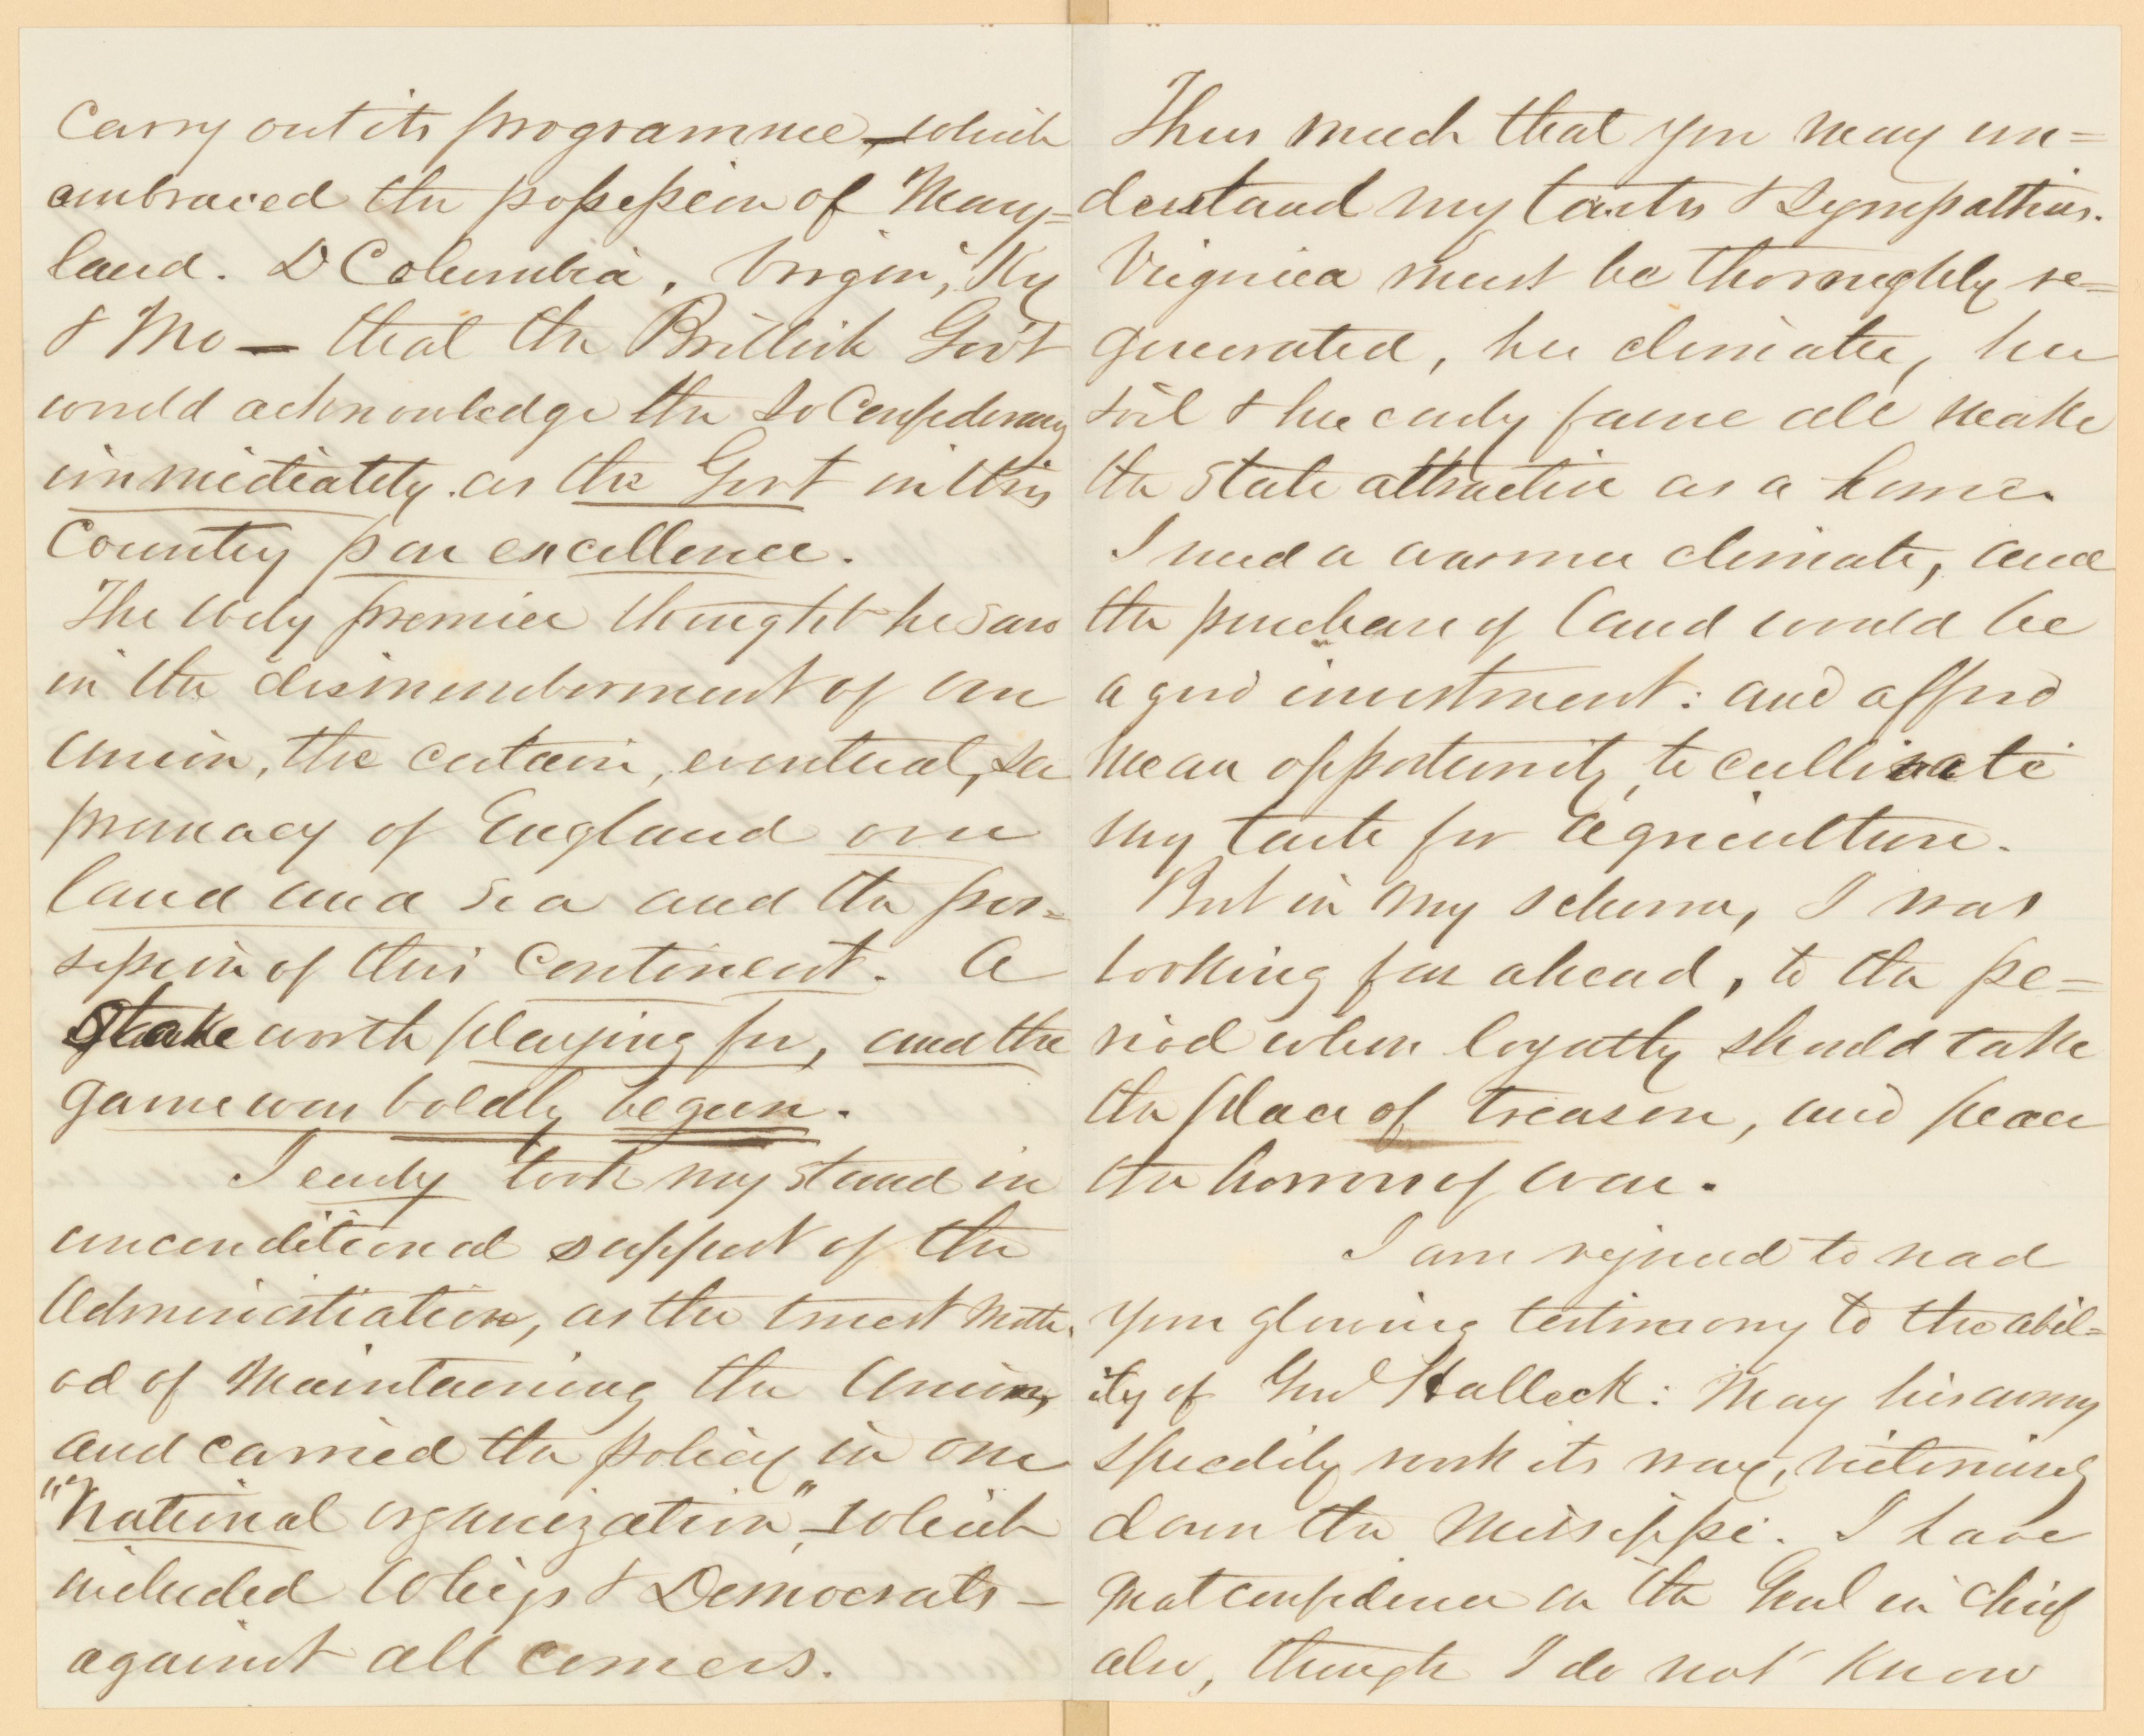 carry out its programme, which
embraced the possession of Mary=
land. D Columbia, Virgin', Ky
& Mo — that the Brittish Gov't
would acknowledge the So Confederacy
immediately. as the Govt in this
Country par excellence.
The wily premier thought he saw
in the dismemberment of our
Union, the certain, eventual, su
premacy of England over
land and sea and the pos=
session of this Continent. A
Stake worth playing for, and the
game was boldly begun.
I early took my stand in
unconditional support of the
Administration, as the truest meth=
od of maintaining the Union,
and carried the policy in our
"National organization", which
included Whigs & Democrats —
against all comers.
Thus much that you may un=
derstand my tastes & sympathies.
Virginia must be thoroughly re=
generated, her climate, her
soil & her early fame all make
the State attractive as a home.
I need a warmer climate, and
the purchase of land would be
a good investment: and afford
me an opportunity, to cultivate
my taste for agriculture.
But in my scheme, I was
looking far ahead, to the pe=
riod when loyalty should take
the place of treason, and peace
the horrors of war.
I am rejoiced to read
your glowing testimony to the abil=
ity of Genl Halleck: May his army
speedily work its way, victoriously
down the Missippi. I have
great confidence in the Genl in Chief
also, though I do not know